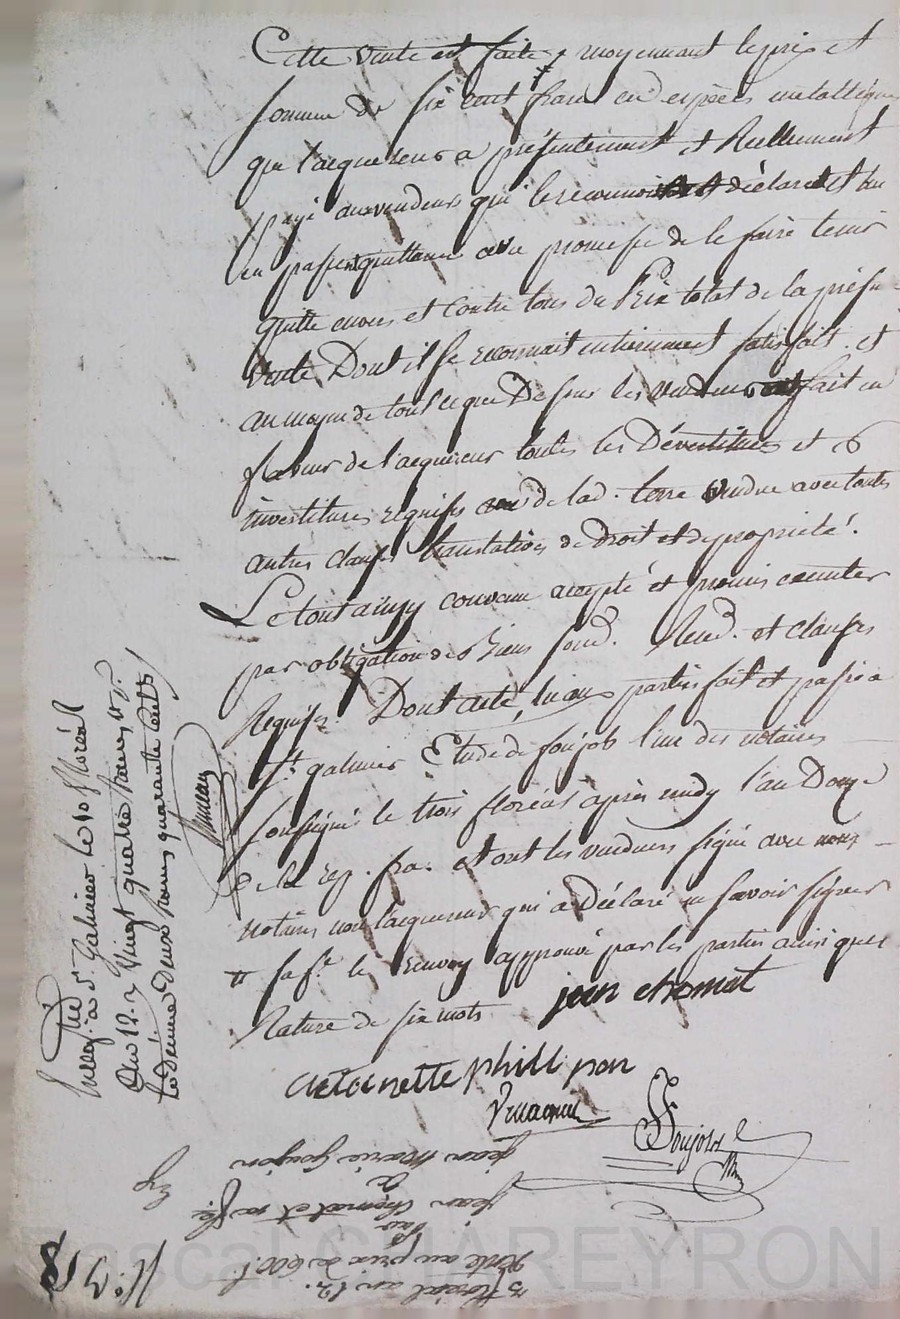 Cette vente est faite moyennant le prix et
somme de six cent franc en especes metalliques
que l'acquereur a présentement et Reellement
payé aux vendeurs qui le reconnoi déclarent et lui
en passe quittance avec promesse de le faire tenir
quitte envers et contre tous du Prix total de la présente
vente Dont il se reconnait entierement satisfait et
au moyen de tout ce que Dessus les vendeurs fait en
faveur de l'acquereur toutes les Dévestitures et
investitures requises de lad. terre vendue avec toutes
autres clauses translatives de droit et de propriété.
Le tout ainsy convenu accepté et promis executer
par obligation de Biens soud. Rend. et clauses
Requises. Dont acte, lu aux parties fait et passé a
St. galmier Etude de Soujol l'un des notaires
soussignés le trois floreal après midy l'an Douze
de la rep. fra. et ont les vendeurs signé avec nous
notaires non l'acquereur qui a déclaré ne savoir signer
le Renvoy approuvé par les parties ainsi que
Rature de six mots jean chomat
antoinette philippon
Soujol
jean marie goujon
a
jean chomat et sa fe
par
vente au prix de 600 f.
3 floreal an 12.
Enreg. a St. Galmier le 10 floréal
an 12. r vingt quatre francs
le dixieme deux francs quarante cents
Pascal CHAREYRON